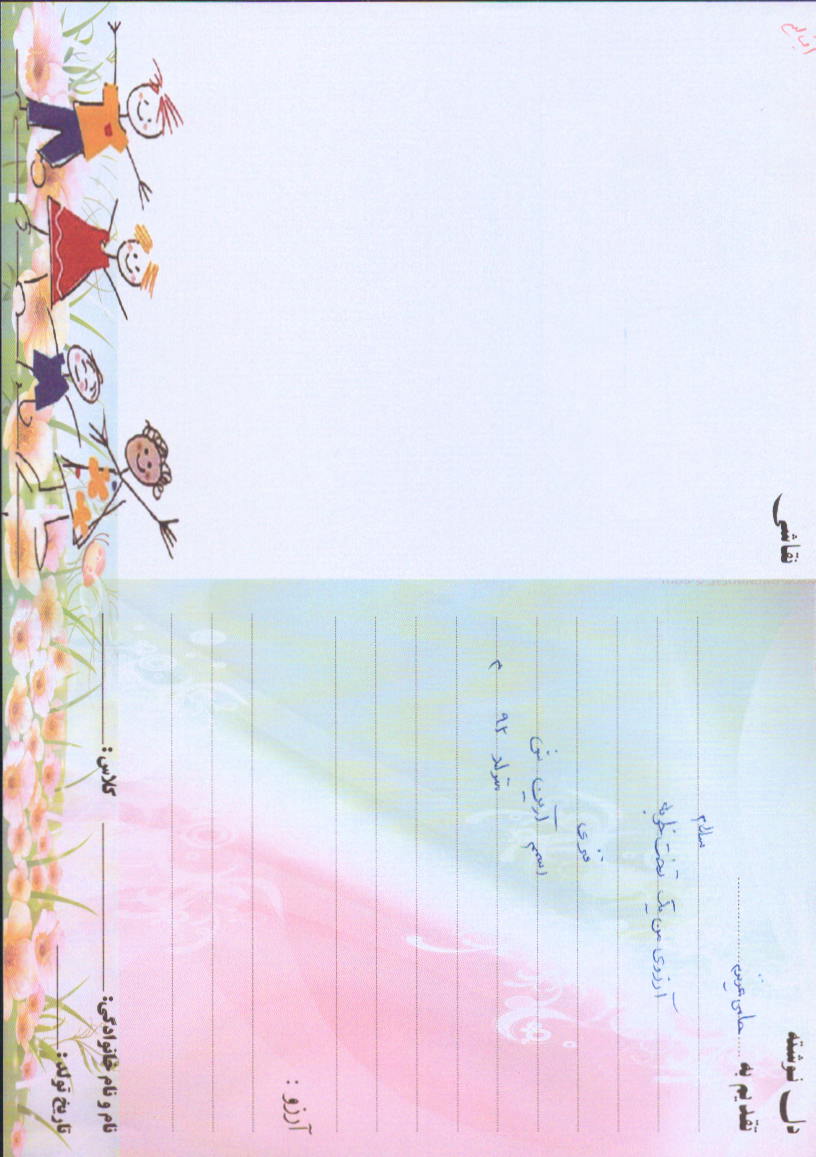 دل نوشته
تقدیم به حامی عزیزم
سلام
آرزوی من یک تخت خوابه
فنری
اسمم آرین ش
متولد ۹۲ م
آرزو :
نام و نام خانوادگی: کلاس :
تاریخ تولد :
نقاشی